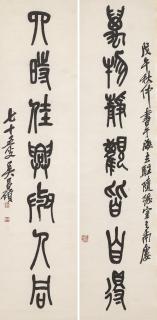 萬物靜觀皆自得
戊午秋仲書于海上駐隨緣室之南廔
四時佳興與人同
七十五叟吳昌碩